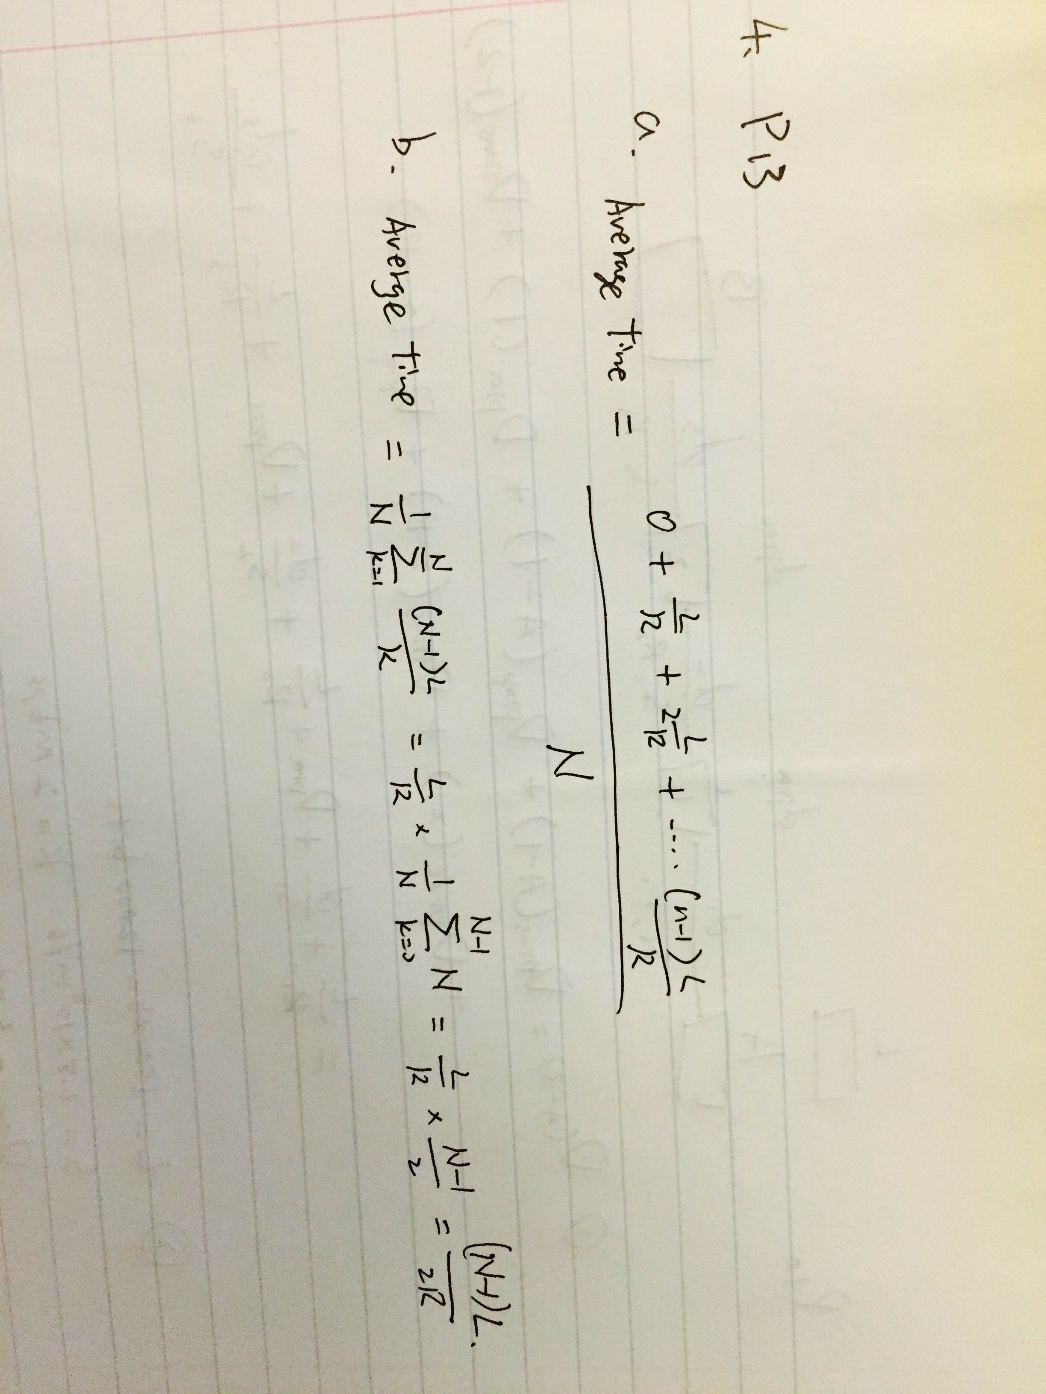 4. P13
a. Average Time = (0 + L/R + 2L/R + .... (n-1)L/R) / N
b. Average Time = 1/N ∑_{k=1}^{N} (N-1)L/R = L/R × 1/N ∑_{k=0}^{N-1} N = L/R × (N-1)/2 = (N-1)L/2R.